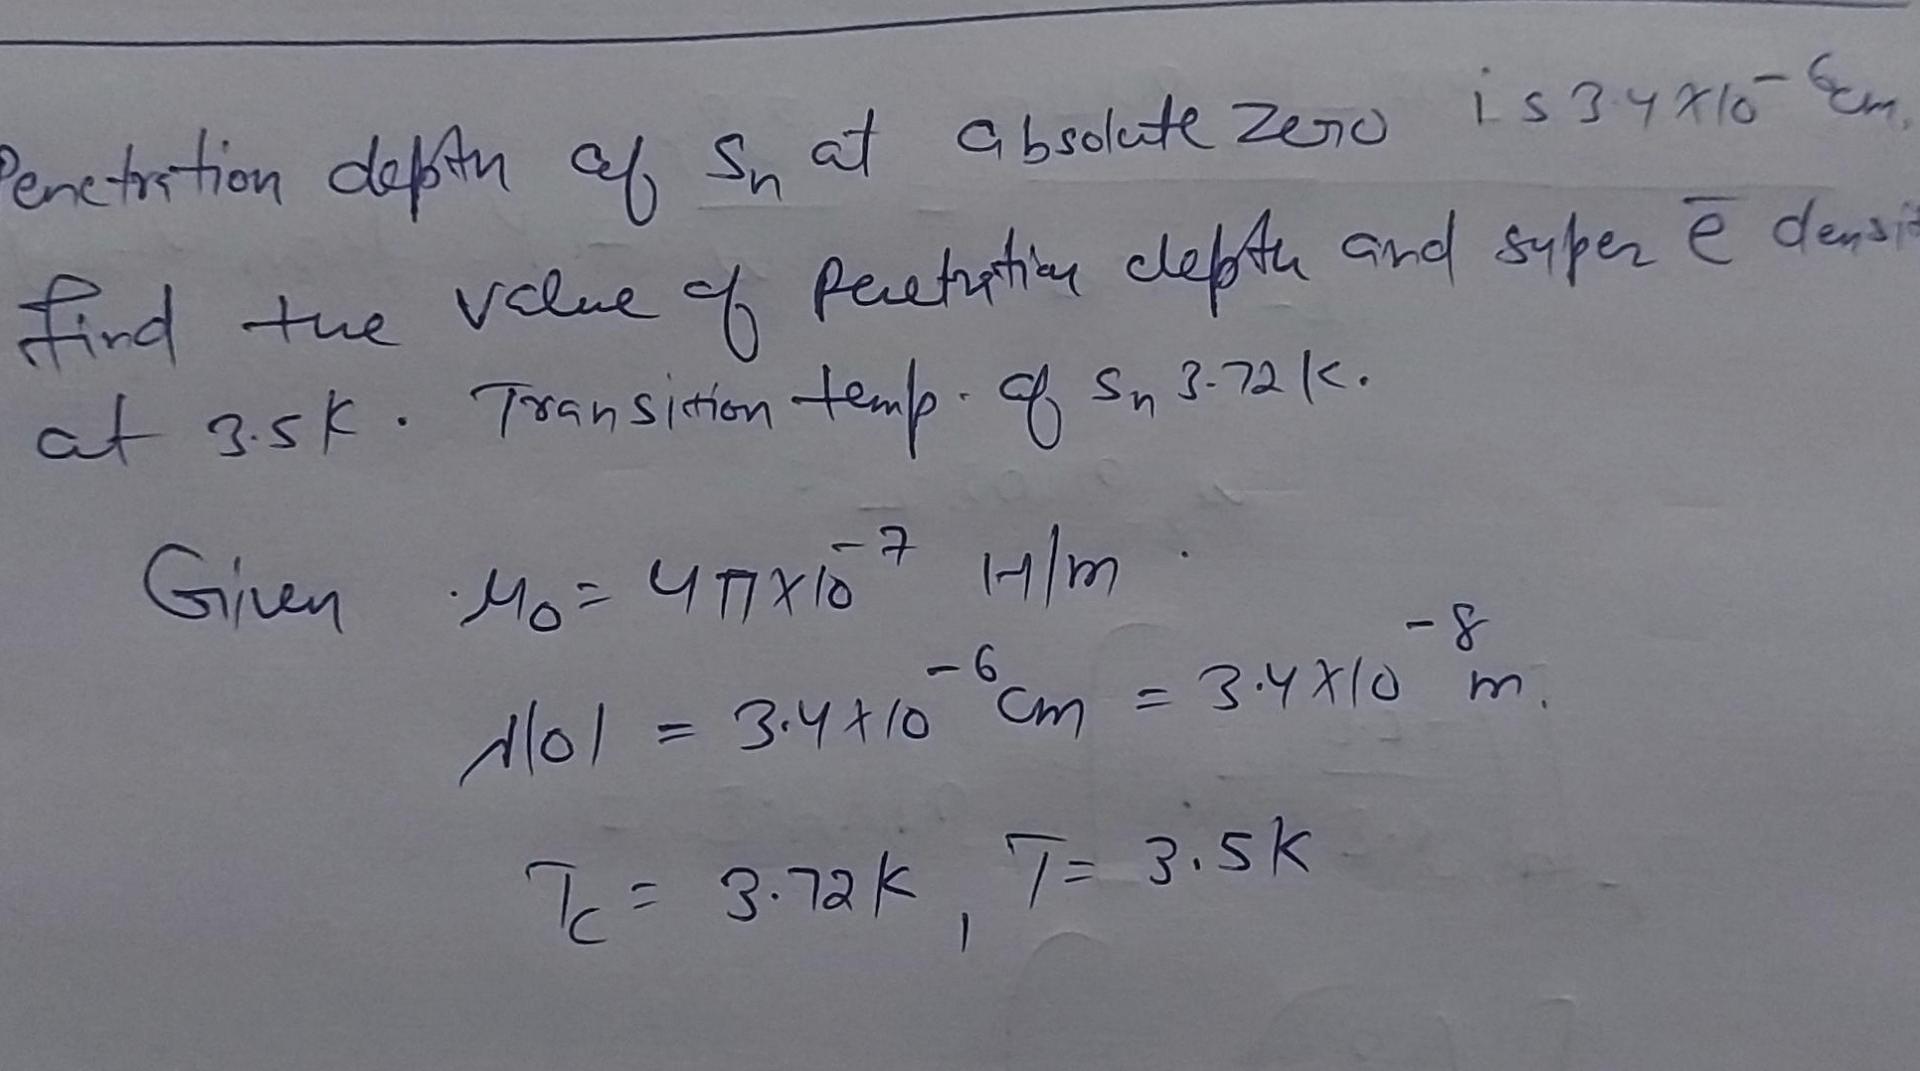 Penetration depth of Sn at absolute zero is 3.4 × 10⁻⁶ cm.
find the value of Penetration depth and super ē densit
at 3.5K. Transition temp. of Sn 3.72 K.
Given μ₀ = 4π×10⁻⁷ H/m
λ(0) = 3.4×10⁻⁶ cm = 3.4×10⁻⁸ m.
Tc = 3.72K, T = 3.5K